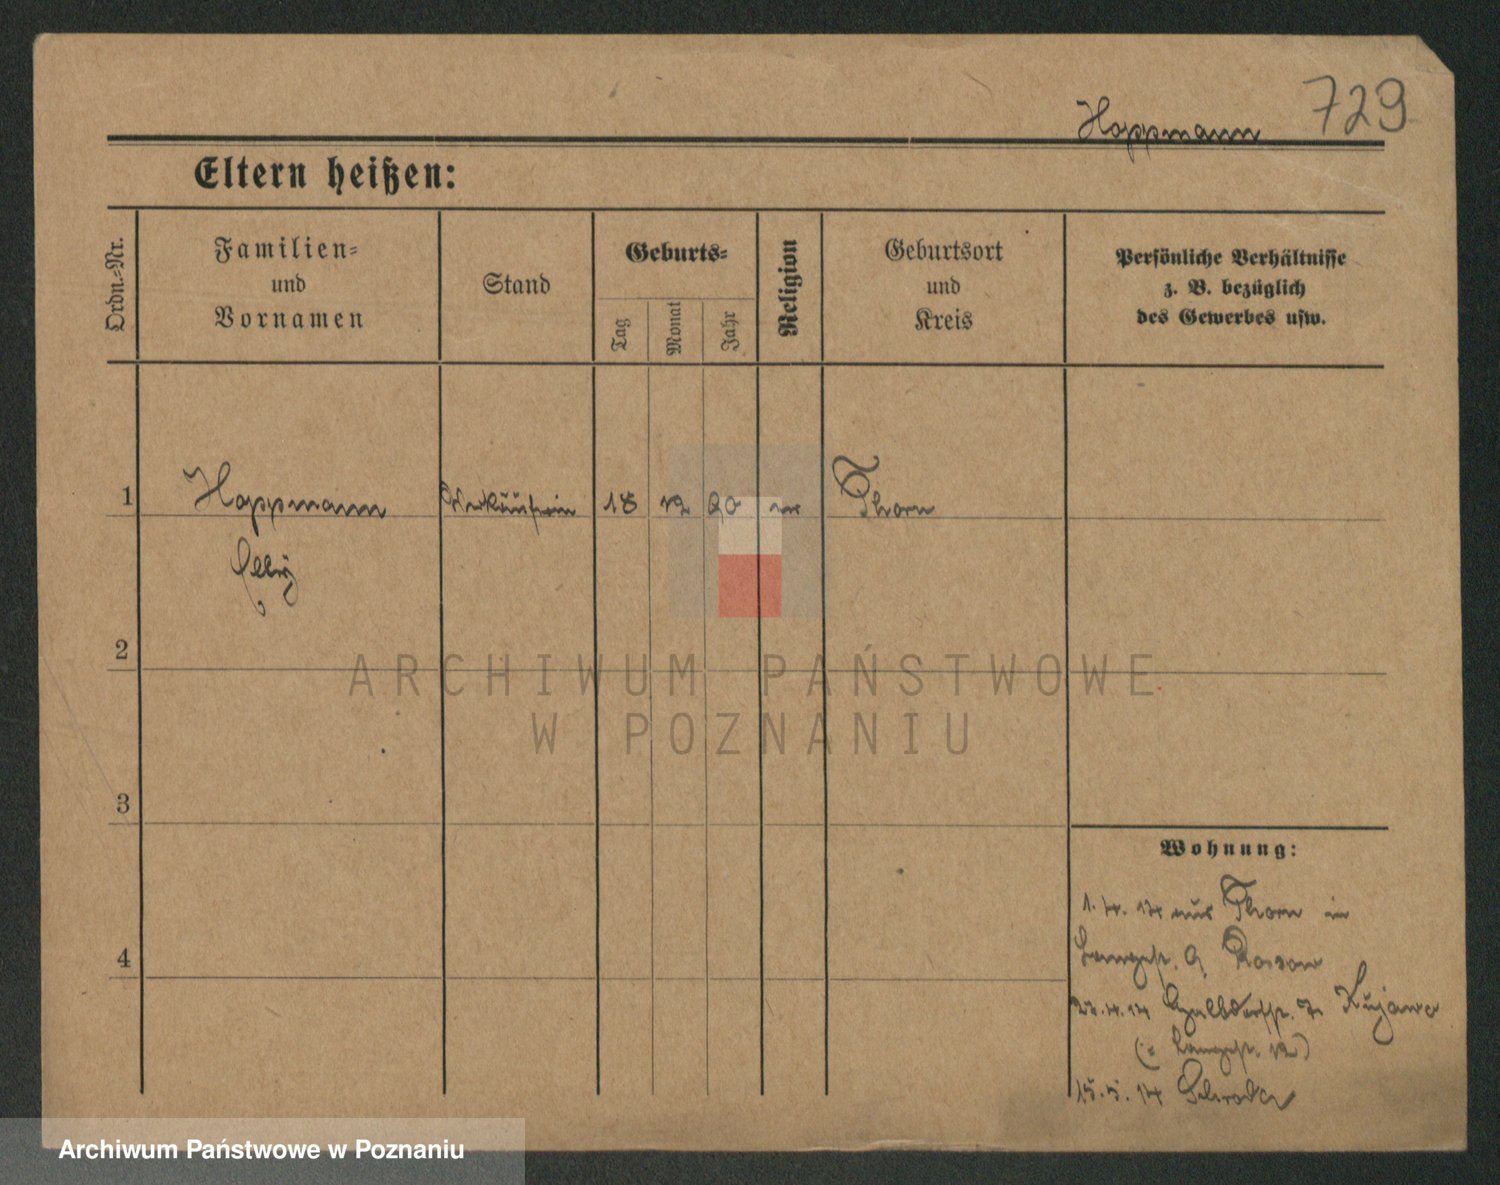 Hoppmann 729
Eltern heißen:
Ordn.-Nr.
Familien-
und
Vornamen
Stand
Geburts-
Tag
Monat
Jahr
Religion
Geburtsort
und
Kreis
Persönliche Verhältnisse
z. B. bezüglich
des Gewerbes usw.
1 Hoppmann Verkäuferin 18 12 90 Thorn
2
3
4
Wohnung:
1. 4. 14 aus Thorn in
Langestr. 9
22. 4. 14 7 Kujawa
Langestr. 12)
15. 5. 14 Schroda
ARCHIWUM PAŃSTWOWE
W POZNANIU
Archiwum Państwowe w Poznaniu